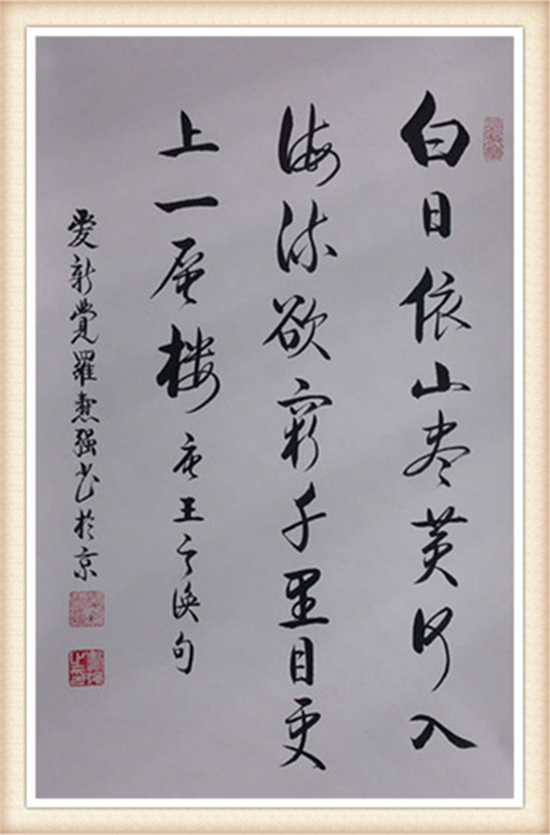 白日依山尽黄河入
海流欲穷千里目更
上一层楼 唐王之涣句
爱新覺羅 强书於京